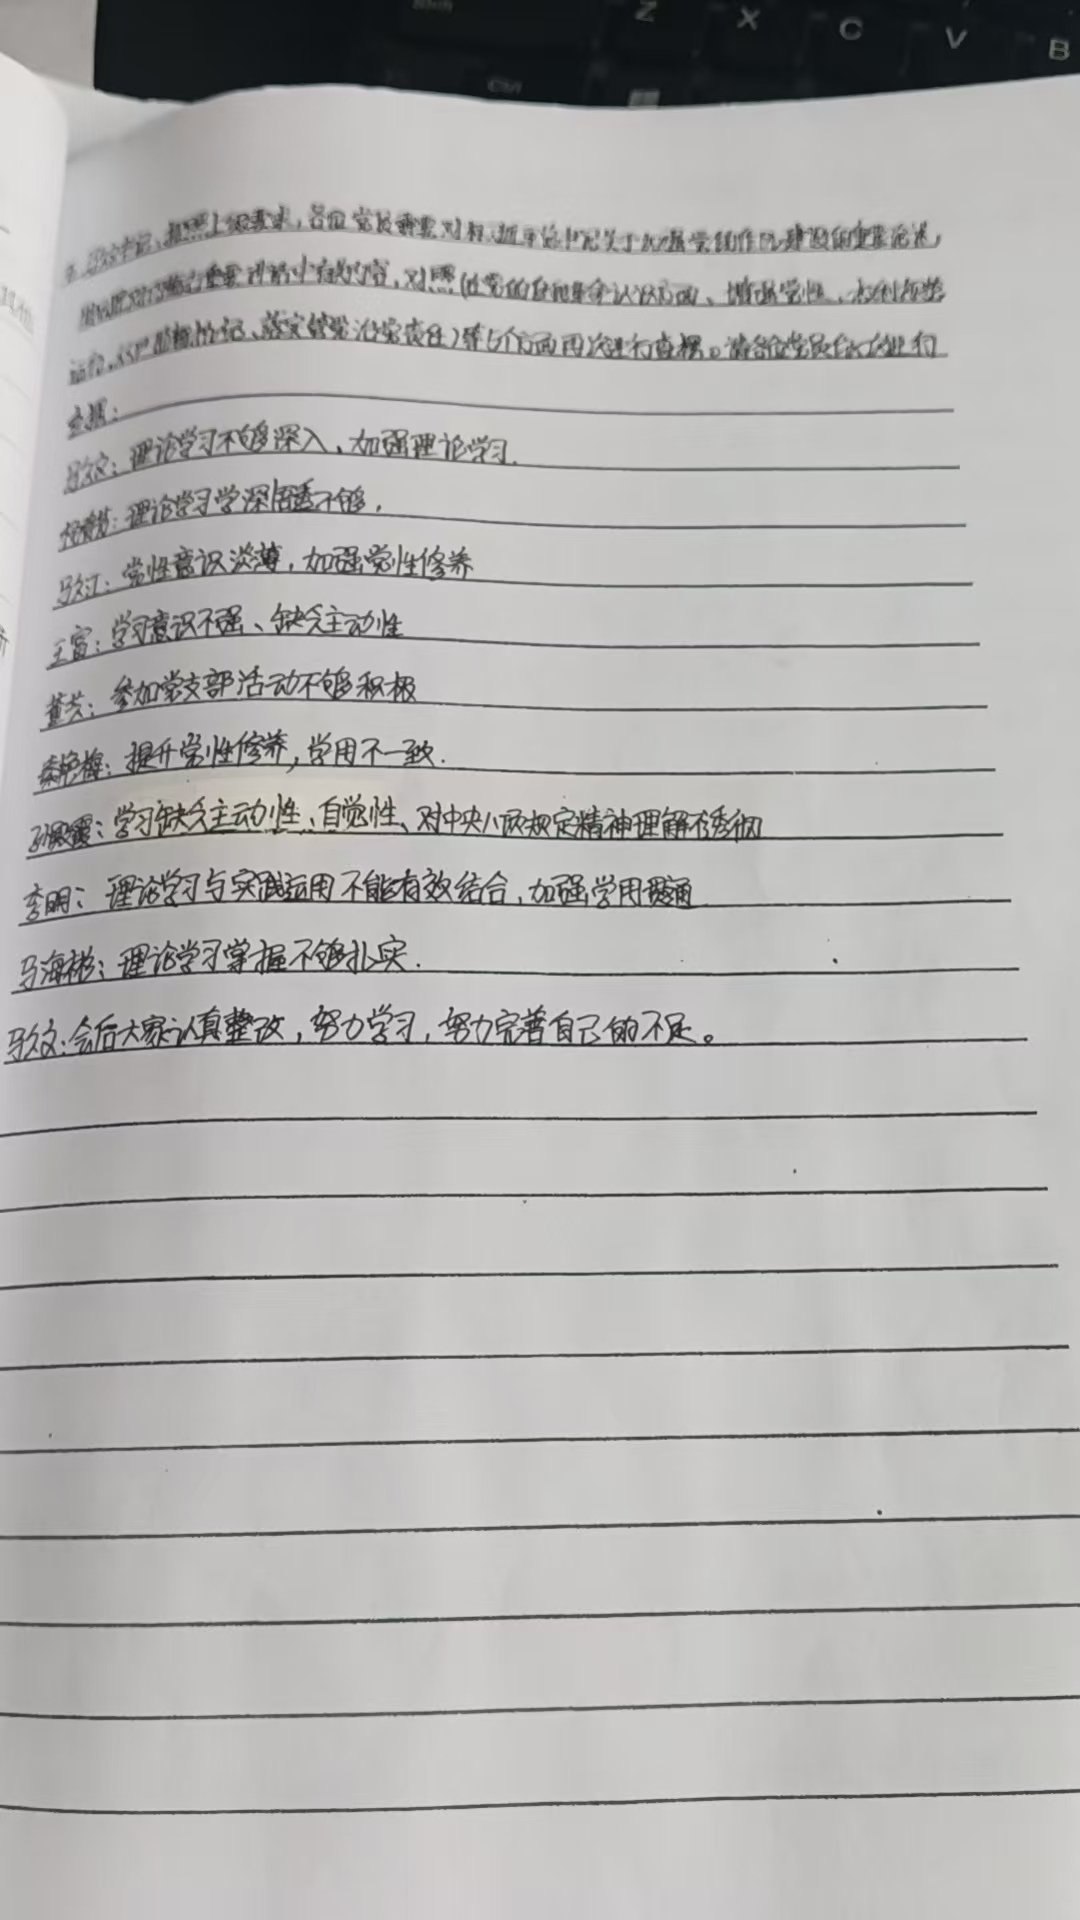 Shift Z X C V B
Ctrl
按照上级要求，各位党员需要对标习近平总书记关于加强党的作风建设的重要论述，
重要讲话中有关内容，对照（在党的自我革命认识方面、增强党性、
落实管党治党责任）等5个方面再次进行查摆。请各位党员依次进行
查摆：
马文：理论学习不够深入，加强理论学习.
理论学习学深悟透不够，
马江：党性意识淡薄，加强党性修养
王富：学习意识不强、缺乏主动性
董芳：参加党支部活动不够积极
秦艳梅：提升党性修养，学用不一致.
孙霞：学习缺乏主动性、自觉性、对中央八项规定精神理解不透彻
李明：理论学习与实践运用不能有效结合，加强学用贯通
马海彬：理论学习掌握不够扎实.
马文：会后大家认真整改，努力学习，努力完善自己的不足。